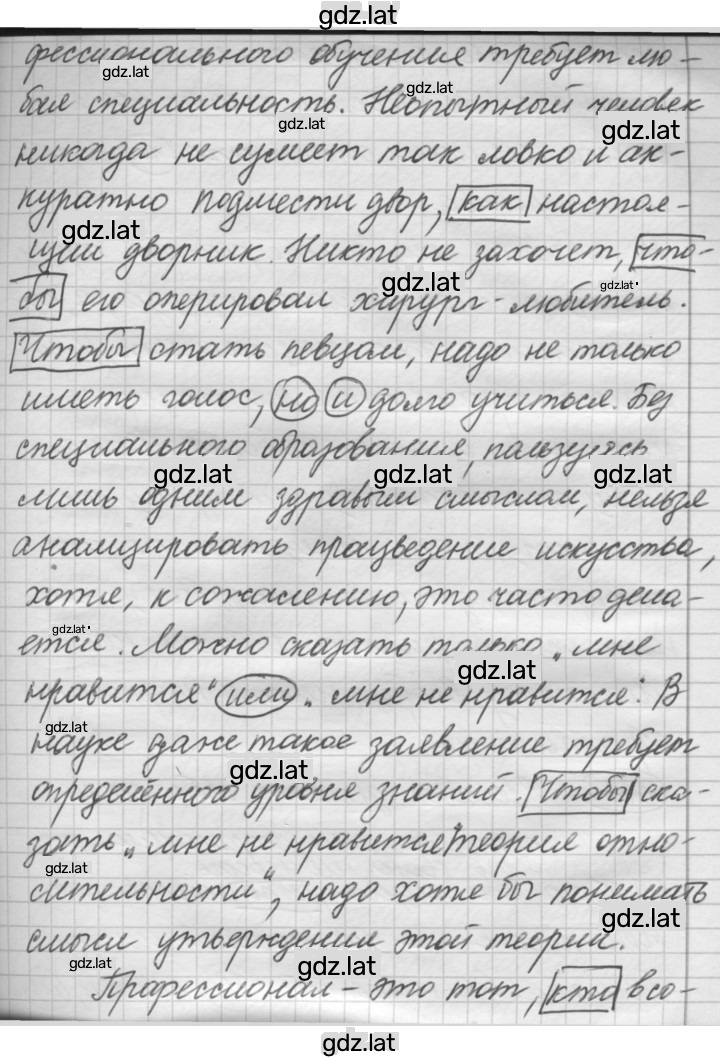 gdz.lat
фессионального обучения требует лю-
gdz.lat
бая специальность. Неопытный человек
gdz.lat
gdz.lat
gdz.lat
никогда не сумеет так ловко и ак-
куратно подмести двор, как настоя-
gdz.lat
щий дворник. Никто не захочет, что-
gdz.lat
gdz.lat
бы его оперировал хирург-любитель.
Чтобы стать певцом, надо не только
иметь голос, но и долго учиться. Без
специального образования, пользуясь
gdz.lat gdz.lat gdz.lat
лишь одним здравым смыслом, нельзя
анализировать произведение искусства,
хотя, к сожалению, это часто дела-
gdz.lat
ется. Можно сказать только „мне
gdz.lat
нравится" или „мне не нравится". В
gdz.lat
науке даже такое заявление требует
gdz.lat
определённого уровня знаний. Чтобы ска-
зать „мне не нравится теория отно-
gdz.lat
сительности", надо хотя бы понимать
gdz.lat
смысл утверждения этой теории.
gdz.lat
gdz.lat
Профессионал - это тот, кто всо-
gdz.lat